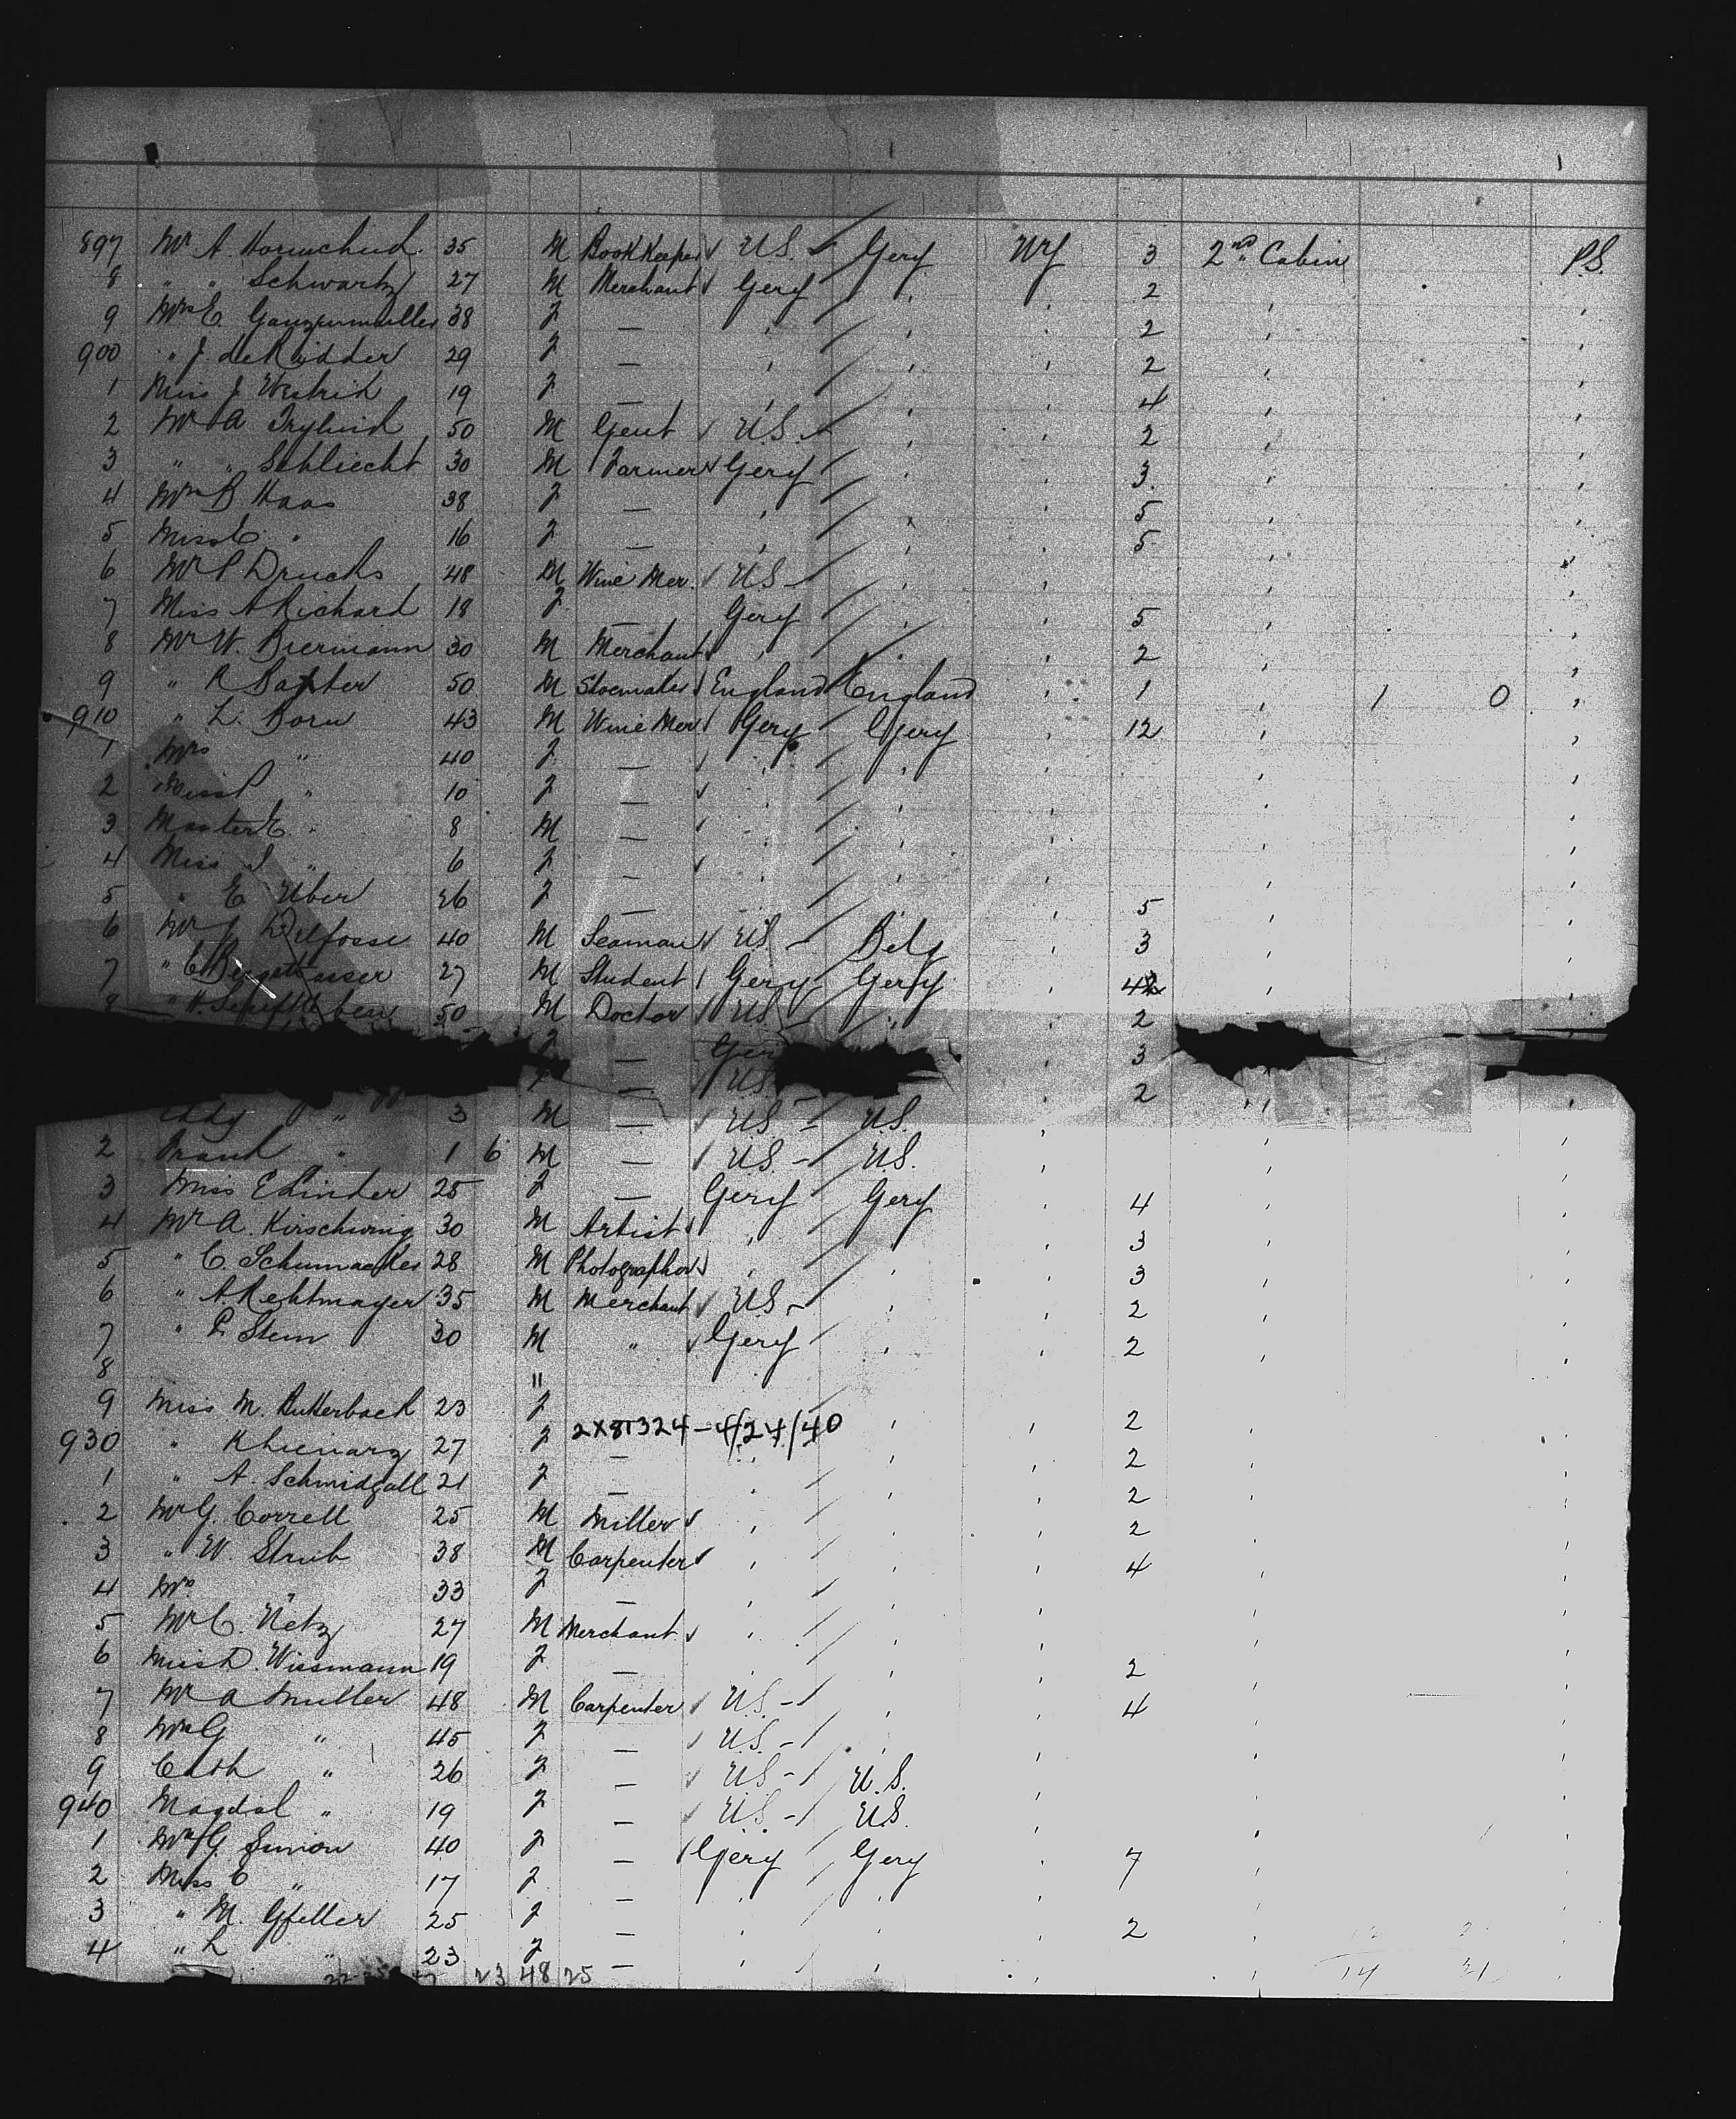 897 Mr A. 35 M BookKeeper U.S. Gery NY 3 2nd Cabin P.S.
8 " " Schwartz 27 M Merchant Gery " " 2 "
9 Mrs E. Ganzenmuller 38 F — " " " 2 "
900 " J. deRidder 29 F — " " " 2 "
1 Miss J Westrich 19 F — " " " 4 "
2 Mr A 50 M Gent U.S. " " 2 "
3 " " Schliecht 30 M Farmer Gery " " 3 "
4 Mrs B Haas 38 F — " " " 5 "
5 Miss C " 16 F — " " " 5 "
6 Mr P Drucks 48 M Wine Mer. U.S. " " "
7 Miss A Richard 18 F — Gery " " 5 "
8 Mr W. Biermann 30 M Merchant " " " 2 "
9 " R Saxter 50 M Shoemaker England England " 1 " 1 0 "
910 " L. Born 43 M Wine Mer Gery Gery " 12 " "
1 Mrs " 40 F — " " " " "
2 Miss P " 10 F — " " " " "
3 Master E " 8 M — " " " " "
4 Miss S " 6 F — " " " " "
5 " E Uber 26 F — " " " 5 " "
6 Mr J Delfosse 40 M Seaman U.S. Belg " 3 " "
7 " C 27 M Student Gery Gery " 42 " "
8 " H. 50 M Doctor U.S. " " 2 "
F — Ger " 3
F — U.S. " 2 "
" 3 M — U.S. U.S. " " "
2 Frank " 1 6 M — U.S. U.S. " " "
3 Miss E Linder 25 F — Gery Gery " 4 " "
4 Mr A. Kirschwing 30 M Artist " " " 3 " "
5 " C. Schumacker 28 M Photographer " " " 3 " "
6 " A. Rehtmayer 35 M Merchant U.S. " " 2 " "
7 " P. Stern 30 M " Gery " " 2 " "
8 "
9 Miss M. Rutterback 23 F " " 2 " "
930 " K Lienarz 27 F 2X8T324-4/24/40 — " " " 2 " "
1 " A. Schmidgall 21 F — " " " 2 " "
2 Mr G. Correll 25 M Miller " " " 2 " "
3 " W. Strub 38 M Carpenter " " " 4 " "
4 Mrs " 33 F — " " " " "
5 Mr C. Netz 27 M Merchant " " " " "
6 Miss D. Wissmann 19 F — " " " 2 " "
7 Mr A Muller 48 M Carpenter U.S. " " 4 " "
8 Mrs G " 45 F — U.S. " " " "
9 Cath " 26 F — U.S. U.S. " " "
940 Magdal " 19 F — U.S. U.S. " " "
1 Mrs G. Simon 40 F — Gery Gery " 7 " "
2 Miss C " 17 F — " " " " "
3 " M. Gfeller 25 F — " " " 2 " "
4 " L " 23 F — " " " " "
23 48 25 14 21